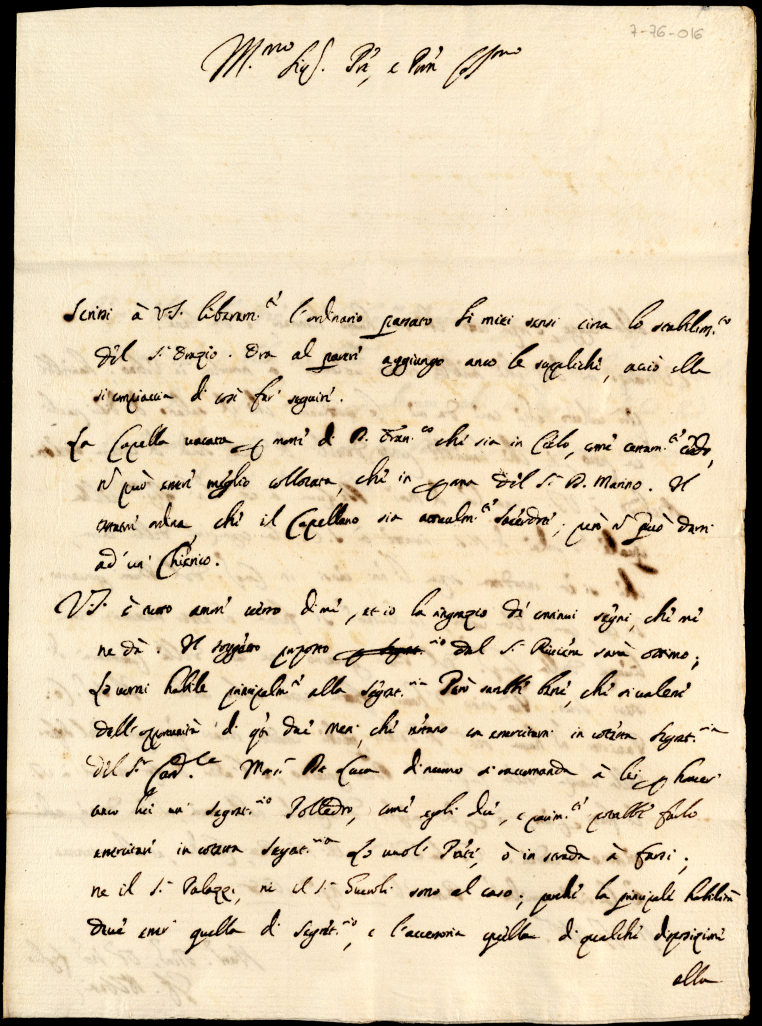 7-76-016
M.mo Sig.r Prè, e Pnè
Scrissi à V.S. liberam.te l'ordinario passato li miei sensi circa lo stabilim.to
del S.r Orazio. Ora al parere aggiungo anco le suppliche, acciò ella
si compiaccia di così far seguire.
La Capella vacata p morte di D. Fran.co che sia in Cielo, come certam.te credo,
nõ può essere meglio collocata, che in psona del S.r D. Marino. Il
ordina che il Capellano sia attualm.te Sacerdote; però nõ può darsi
ad un' Chierico.
V.S. è tutto amore verso di me, et io la ringrazio de continui segni, che me
ne dà. Il soggetto proposto dal S.r Riviera sarà ottimo;
Lo vorrei habile principalm.te alla Segret.ria Però sarebbe bene, che si valesse
dell'opportunità di q̃ti due mesi, che restano con esercitarsi in cotesta Segret.ria
del S.r Card.le Mons.r De Luca di nuovo si raccomanda à lei p haver
anco lui un' Segret.rio Polledro, come egli dice, e parim.te potrebbe farlo
esercitare in cotesta Segret.ria Lo vuole Prete, ò in strada à farsi;
ne il S.r Palazzi, ne il S.r sono al caso; perche la principale habilità
deve esser quella di Segret.rio, e l'accessoria quella di qualche disposizione
alla